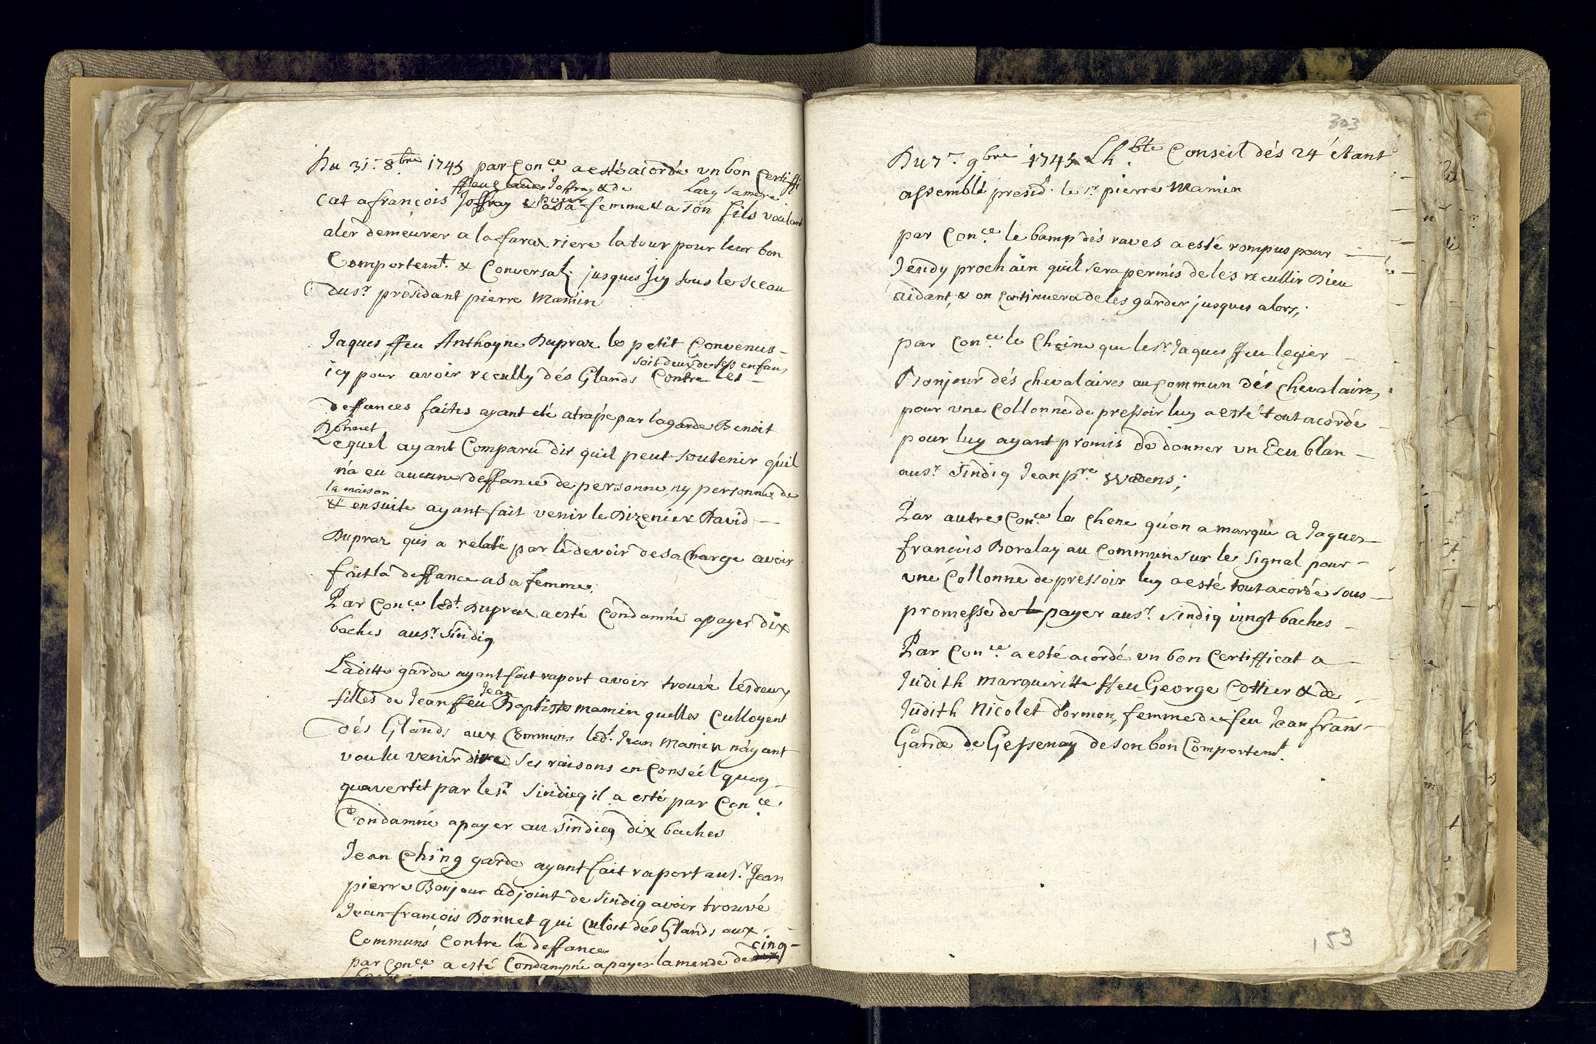 Du 31e 8bre 1745 par Conce a esté acordé vn bon Certiffi
ffeu Jaoffray & de
cat a françois Joffray & a sa femme & a son fils voulant
aler demeurer a la rière la tour pour leur bon
Comportemt. & Conversat. jusques Icy sous le sceau
du sr présidant pierre Mamin
Jaques ffeu Anthoyne Dupraz le petit Convenus
soit deux de ses enfans
icy pour avoir recully dés Glands Contre les
deffances faites ayant été atrapé par la garde Benoit
Bonnet
Lequel ayant Comparu dit quil peut soutenir quil
n'a eu aucune deffance de personne ny personne de
la maison
& ensuite ayant fait venir le Dizenier David
Dupraz qui a relaté par le devoir de sa Charge avoir
fait la deffance a sa femme;
Par Conce ledt. Dupraz a esté Condamné apayer dix
baches au sr Sindiq
Laditte garde ayant fait raport avoir trouvé les deux
Jean
filles de Jean ffeu Baptiste mamin quelles Culloyent
dés Glands aux Communs ledt. Jean Mamin n'ayant
voulu venir dire ses raisons en Conseil quoy
quavertit par le sr Sindicq il a esté par Conce.
Condamné apayer au sindicq dix baches
Jean Ching garde ayant fait raport au sr. Jean
pierre Bonjour adjoint de Sindiq avoir trouvé
Jean françois Bonnet qui culoit dés Glands aux
Communs Contre la deffance
cinq
par Conce a esté Condampné apayer lamende de
303
Du 7e 9bre 1745 Lhble Conseil dés 24 étant
assemblé présidt. le sr pierre Mamin
par Conce. le bamp dés raves a esté rompus pour
Jeudy prochain quil sera permis de les recullir Dieu
aidant, & on continuera de les garder jusques alors,
par Conce le Cheine que le sr Jaques ffeu legier
Bonjour dés chevalaires au Commun dés chevalaires
pour vne Collonne de pressoir luy a esté tout acordé
pour luy ayant promis de donner vn Ecu blan
au sr Sindiq Jean pre
Par autre Conce le chene qu'on a marqué a Jaques
françois Doralay au Commun sur le Signal pour
vne Collonne de pressoir luy a esté tout acordé sous
promesse de payer au sr. sindiq vingt baches
Par Conce. a esté acordé vn bon Certifficat a
Judith Margueritte ffeu George Cottier & de
Judith Nicolet dormon, femme de feu Jean frans
de Gessenay de son bon Comportemt.
153